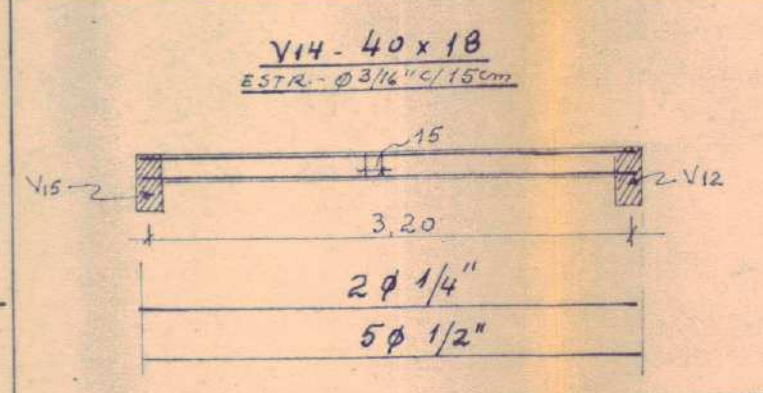 V14 - 40 x 18
ESTR. - Ø 3/16" c/ 15cm
15
V15
V12
3,20
2 Ø 1/4"
5 Ø 1/2"